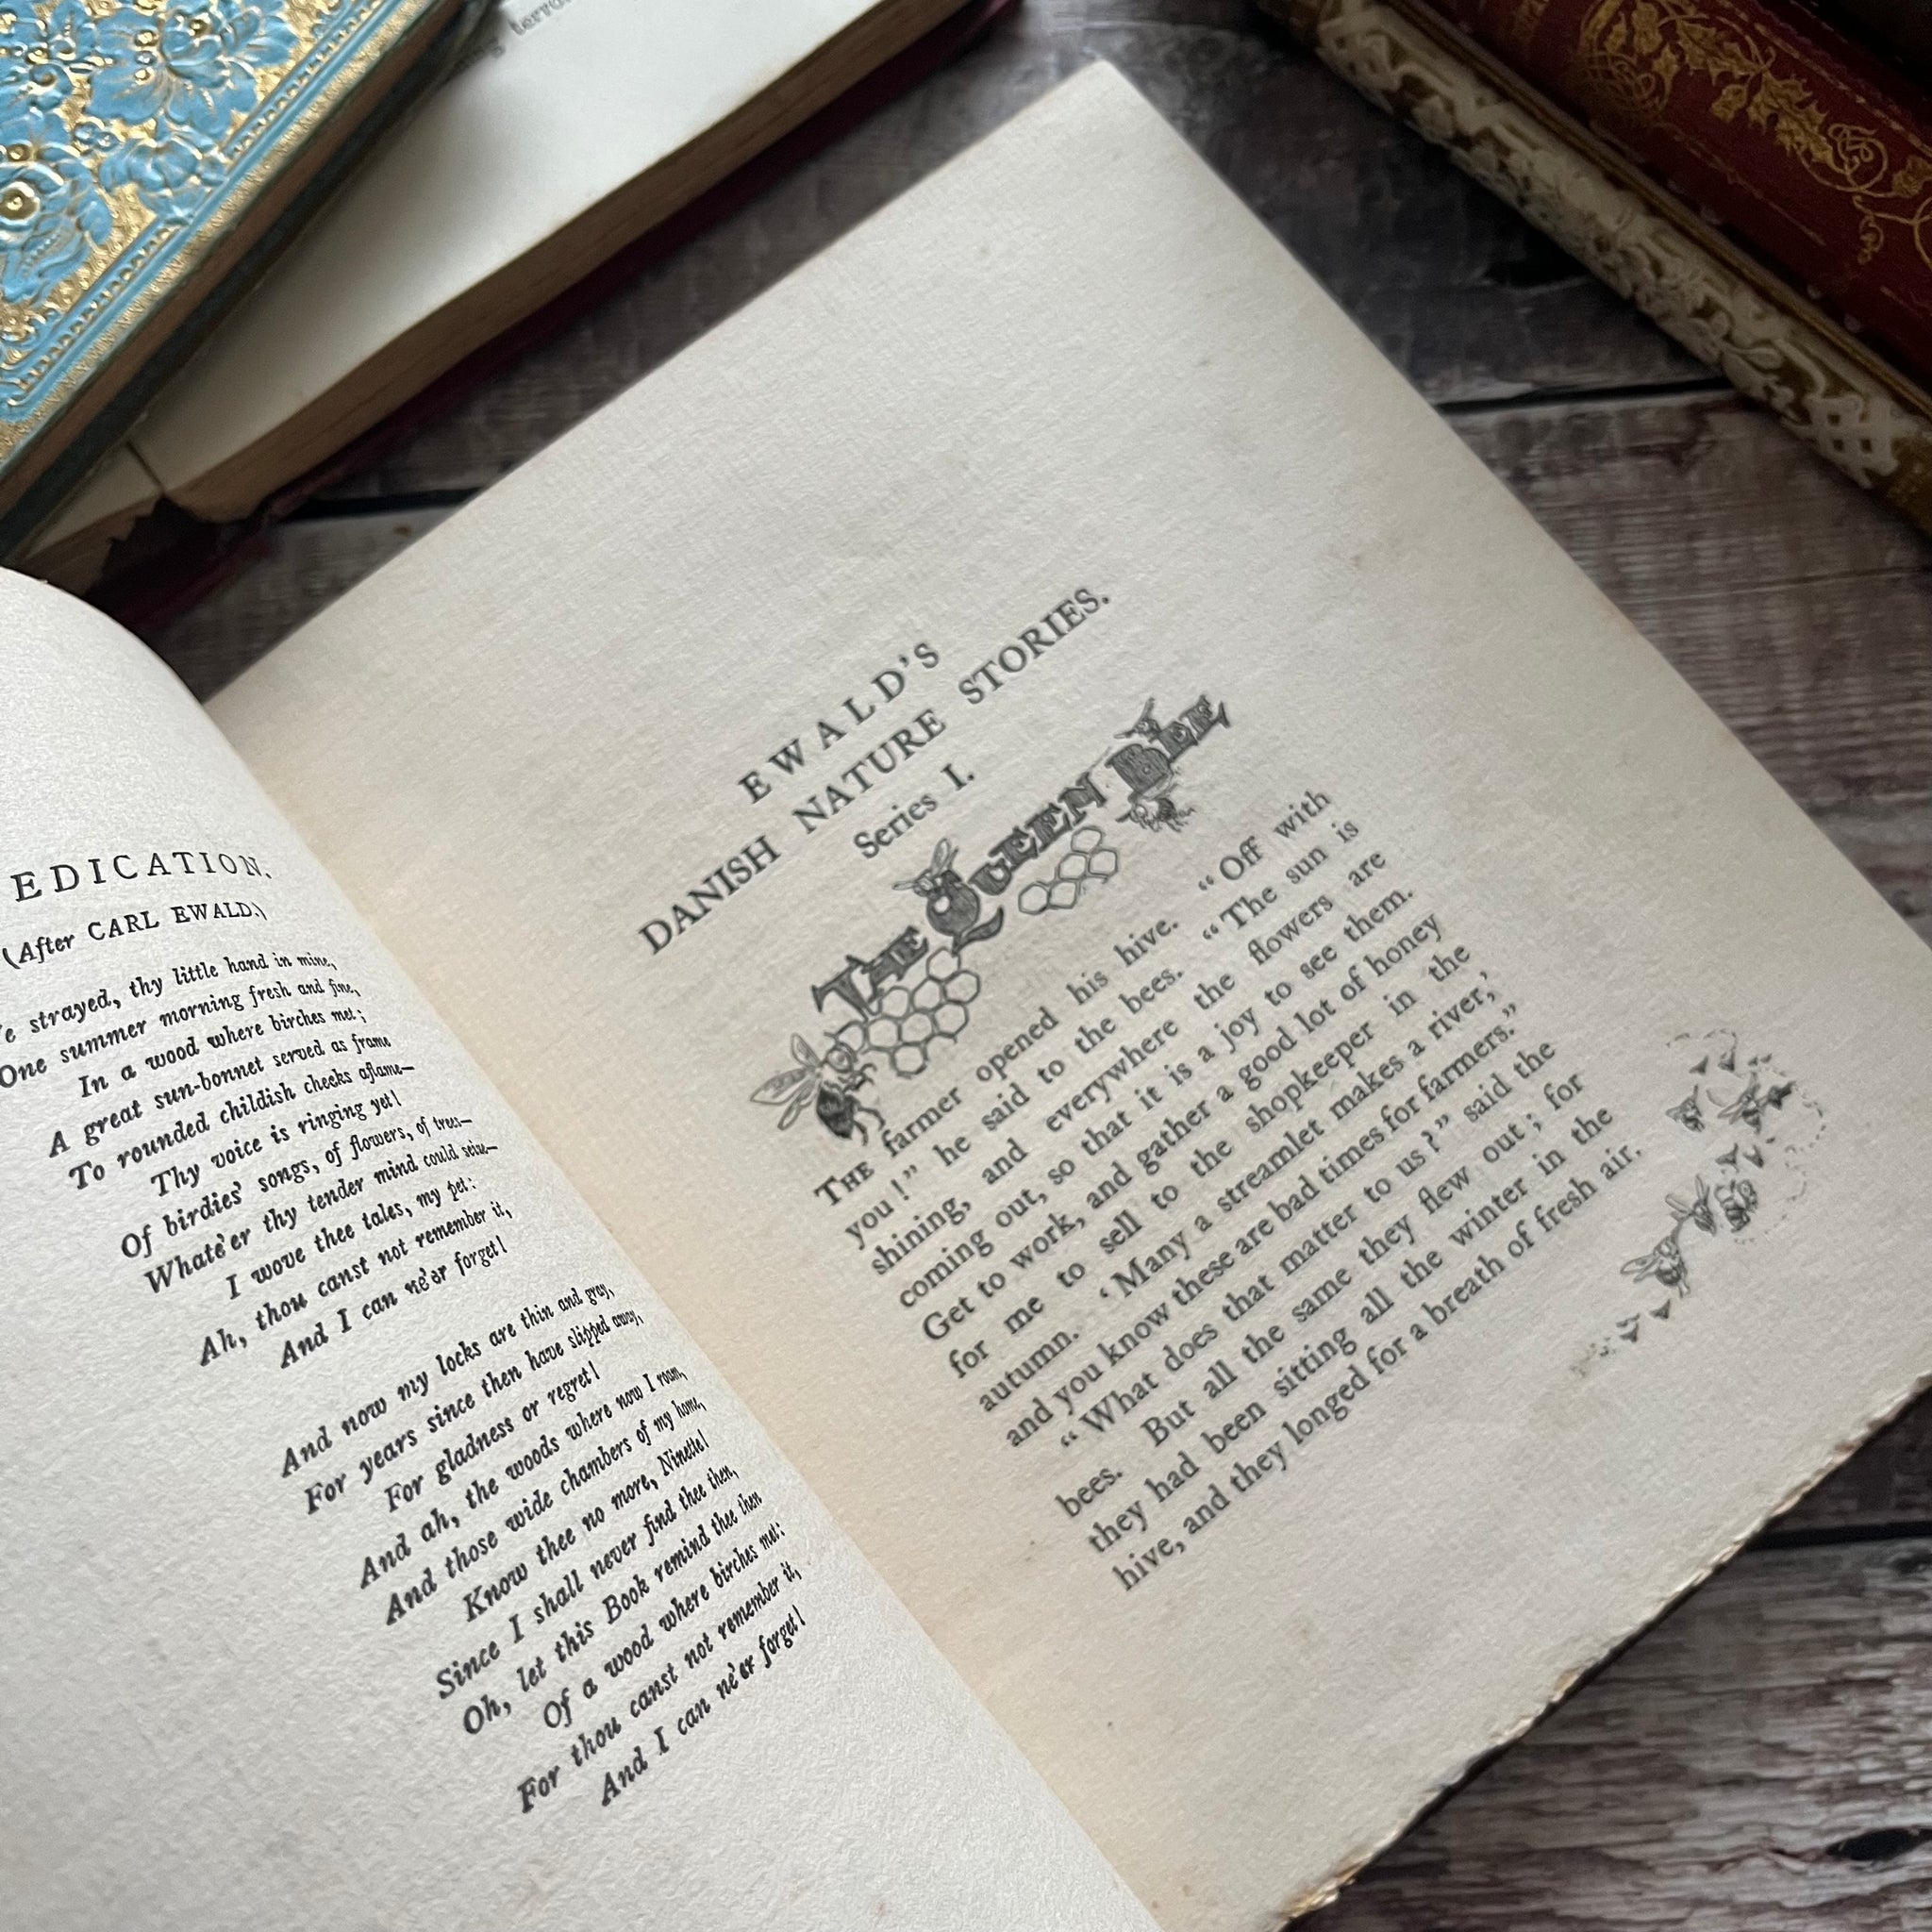 EDICATION.
(After CARL EWALD.)
e strayed, thy little hand in mine,
One summer morning fresh and fine,
In a wood where birches met;
A great sun-bonnet served as frame
To rounded childish cheeks aflame—
Thy voice is ringing yet!
Of birdies' songs, of flowers, of trees—
Whate'er thy tender mind could seize—
I wove thee tales, my pet:
Ah, thou canst not remember it,
And I can ne'er forget!
And now my locks are thin and gray,
For years since then have slipped away,
For gladness or regret!
And ah, the woods where now I roam,
And those wide chambers of my home,
Know thee no more, Ninette!
Since I shall never find thee then,
Oh, let this Book remind thee then
Of a wood where birches met:
For thou canst not remember it,
And I can ne'er forget!
EWALD'S
DANISH NATURE STORIES.
Series I.
THE QUEEN BEE
THE farmer opened his hive. “Off with
you!” he said to the bees. “The sun is
shining, and everywhere the flowers are
coming out, so that it is a joy to see them.
Get to work, and gather a good lot of honey
for me to sell to the shopkeeper in the
autumn. ‘Many a streamlet makes a river,’
and you know these are bad times for farmers.”
“What does that matter to us?” said the
bees. But all the same they flew out; for
they had been sitting all the winter in the
hive, and they longed for a breath of fresh air.